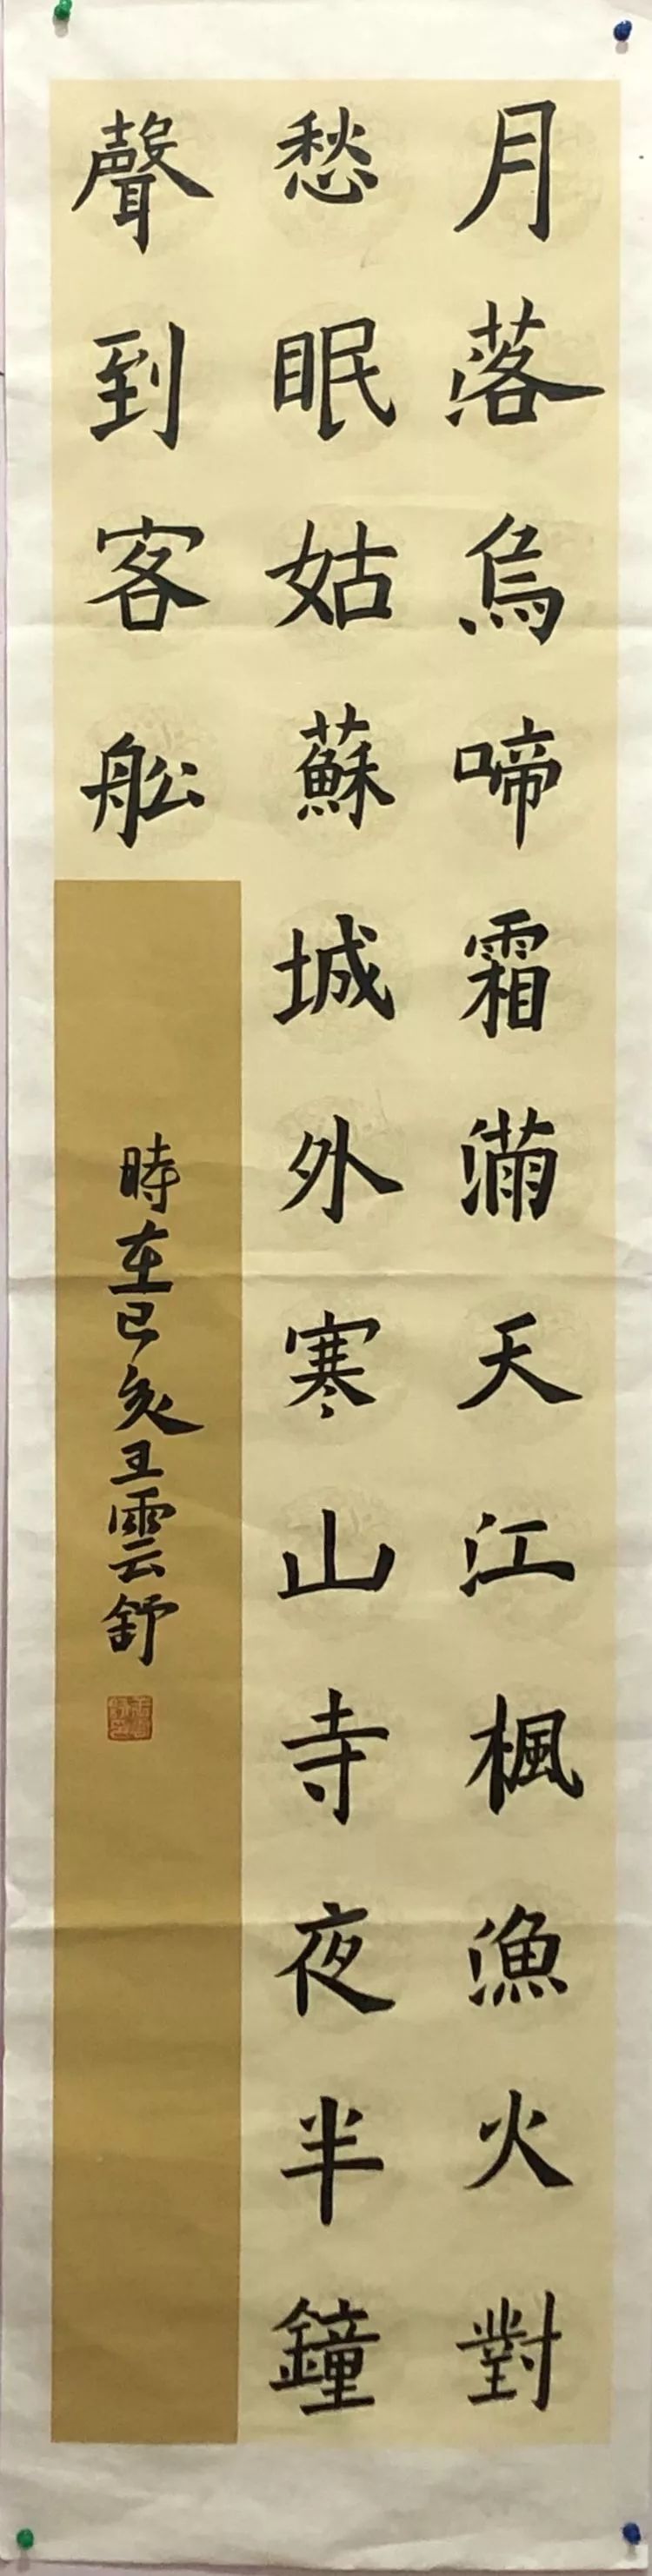 月落烏啼霜滿天江楓漁火對
愁眠姑蘇城外寒山寺夜半鐘
聲到客舩
時在己亥王雲舒